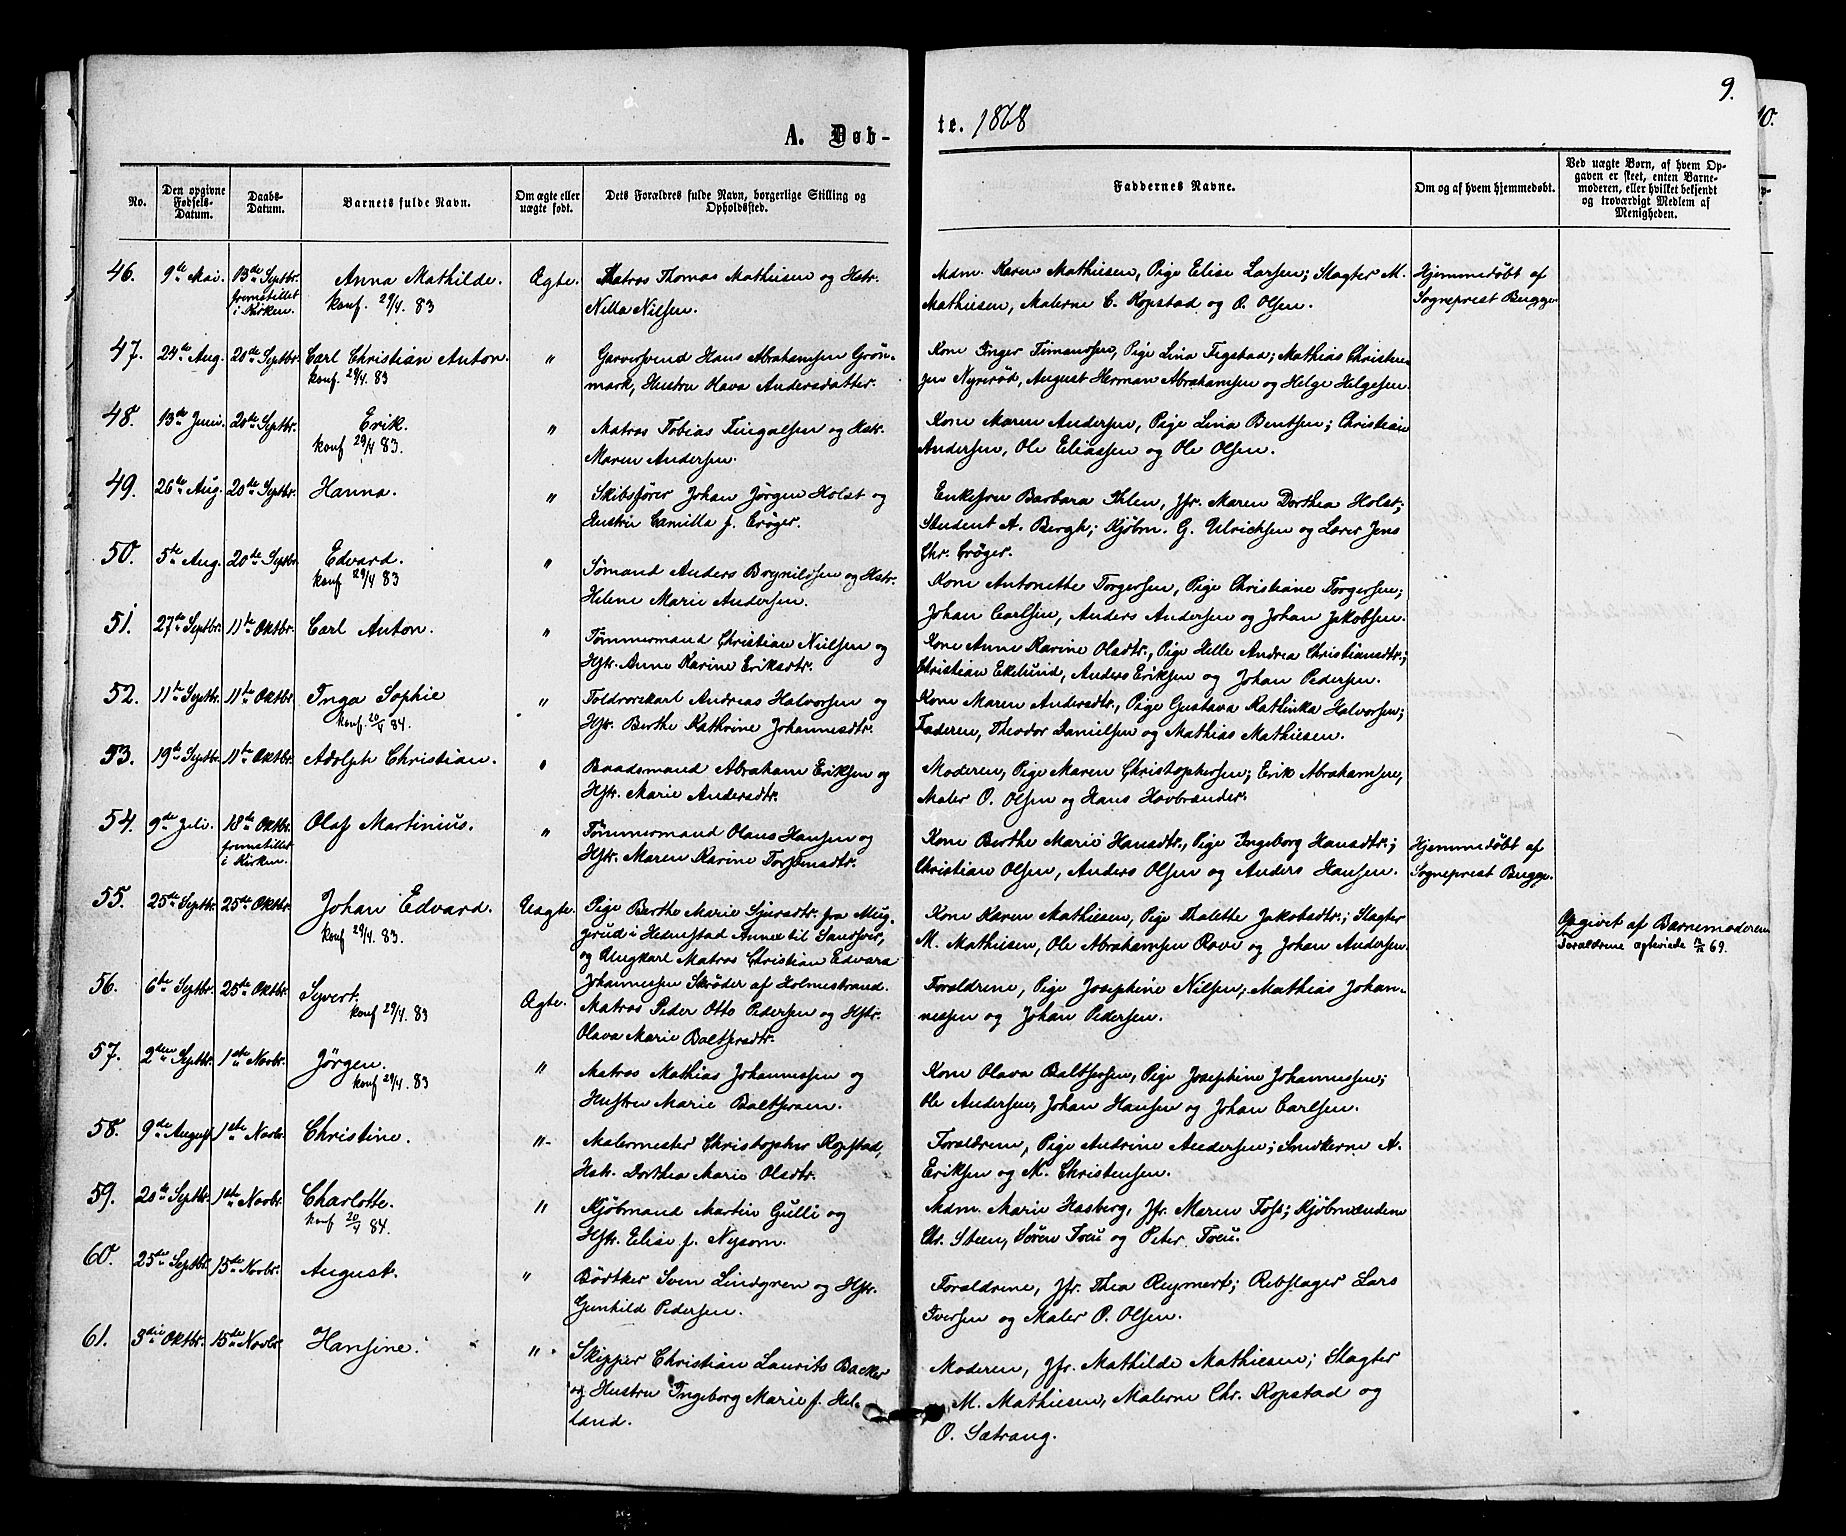 9.
A. Døb-te. 1868
10.
No.
Den opgivne Fødsels-Datum.
Daabs-Datum.
Barnets fulde Navn.
Om ægte eller uægte født.
Dets Forældres fulde Navn, borgerlige Stilling og Opholdssted.
Faddernes Navne.
Om og af hvem hjemmedøbt.
Ved uægte Børn, af hvem Opgaven er skeet, enten Barnemoderen, eller hvilket bekjendt og troværdigt Medlem af Menigheden.
46. 9de Mai. 13de Septbr. fremstillet i Kirken. Anna Mathilde. konf. 29/4 83 Ægte. Matros Thomas Mathiesen og Hstr.
Nilla Nilsen.
Mdm. Karen Mathiesen, Pige Elise Larsen; Slagter M.
Mathiesen, Malerne C. Kopstad og O. Olsen.
Hjemmedøbt af
Sogneprest Bugge.
47. 24de Aug. 20de Septbr. Carl Christian Anton. konf. 29/4 83 " Garversvend Hans Abrahamsen Grön-
mark, Hustru Olava Andersdatter.
Kone Inger Simensen, Pige Lina Tegstad; Mathias Christen-
sen Nyrerød, August Herman Abrahamsen og Helge Helgesen.
48. 13de Juni. 20de Septbr. Erik. konf 29/4 83. " Matros Tobias Fingalsen og Hstr.
Maren Andersen.
Kone Maren Andersen, Pige Lina Bentsen; Christian
Andersen, Ole Eliassen og Ole Olsen.
49. 26de Aug. 20de Septbr. Hanna. " Skibsfører Johan Jörgen Holst og
Hustru Camilla f. Cröger.
Enkefru Barbara Ihlen, Jfr. Maren Dorthea Holst;
Student A. Bergh; Kjöbm. G. Ulrichsen og Lærer Jens
Chr. Cröger.
50. 5te Aug. 20de Septbr. Edvard. konf 29/4 83 " Sømand Anders Brynildsen og Hstr.
Helene Marie Andersen.
Kone Antonette Torgersen, Pige Christiane Torgersen;
Johan Carlsen, Anders Andersen og Johan Jakobsen.
51. 27de Septbr. 11te Oktbr. Carl Anton. " Tømmermand Christian Nielsen og
Hstr. Anne Karine Eriksdtr.
Kone Anne Karine Olsdtr., Pige Helle Andrea Christiansdtr.;
Christian Ekelund, Anders Eriksen og Johan Pedersen.
52. 11te Septbr. 11te Oktbr. Inga Sophie konf. 20/4 84. " Toldroerkarl Andreas Halvorsen og
Hstr. Berthe Kathrine Johannesdtr.
Kone Maren Andersdtr., Pige Gustava Kathinka Halvorsen;
Faderen, Theodor Danielsen og Mathias Mathiesen.
53. 19de Septbr. 11te Oktbr. Adolph Christian. " Baadsmand Abraham Eriksen og
Hstr. Marie Andersdtr.
Moderen, Pige Maren Christophersen; Erik Abrahamsen,
Maler O. Olsen og Hans Havbrænder.
54. 9de Juli. 18de Oktbr. fremstillet i Kirken. Olaf Martinius. " Tømmermand Olaus Hansen og
Hstr. Maren Karine Torstensdtr.
Kone Berthe Marie Hansdtr., Pige Ingeborg Hansdtr.;
Christian Olsen, Anders Olsen og Anders Hansen.
Hjemmedøbt af
Sogneprest Bugge.
55. 25de Septbr. 25de Oktbr. Johan Edvard. konf 29/4 83. Uægte. Pige Berthe Marie Sjursdtr. fra Mug-
gerud i Hedenstad Annex til Sandsvær,
og Ungkarl Matros Christian Edvard
Johannessen Skrøder af Holmestrand.
Kone Karen Mathiesen, Pige Thalette Jakobsdtr.; Slagter
M. Mathiesen, Ole Abrahamsen Rove og Johan Andersen
Opgivet af Barnemoderen
Forældrene ægteviede 69.
56. 6te Septbr. 25de Oktbr. Syvert. konf 29/4. 83 Ægte. Matros Peder Otto Pedersen og Hstr.
Olava Marie Baltsersdtr.
Forældrene, Pige Josephine Nilsen; Mathias Johan-
nessen og Johan Pedersen.
57. 2den Septbr. 1ste Novbr. Jörgen. konf 29/4. 83 " Matros Mathias Johannessen og
Hustru Marie Baltsersen.
Kone Olava Baltsersen, Pige Josephine Johannessen;
Ole Andersen, Johan Hansen og Johan Carlsen.
58. 9de August 1ste Novbr. Christine. " Malermester Christopher Kopstad,
Hstr. Dorthea Marie Olsdtr.
Forældrene, Pige Andrine Andersen; Snedkerne A.
Eriksen og M. Christensen.
59. 20de Septbr. 1ste Novbr. Charlotte. konf 20/4 84. " Kjöbmand Martin Gulli og
Hstr. Elise f. Nysom.
Mdm. Marie Hasberg, Jfr. Maren Foss; Kjöbmændene
Chr. Steen, Søren Foeu og Peter Foeu.
60. 25de Septbr. 15de Novbr. August. " Bödtker Sven Lindgren og Hstr.
Gunhild Pedersen.
Forældrene, Jfr. Thea Reymert; Rebslager Lars
Iversen og Maler O. Olsen.
61. 3die Oktbr. 15de Novbr. Hansine. " Skipper Christian Laurits Backer
og Hustru Ingeborg Marie f. Hel-
land.
Moderen, Jfr. Mathilde Mathiesen; Slagter
M. Mathiesen, Malerne Chr. Kopstad og
O. Sætrang.